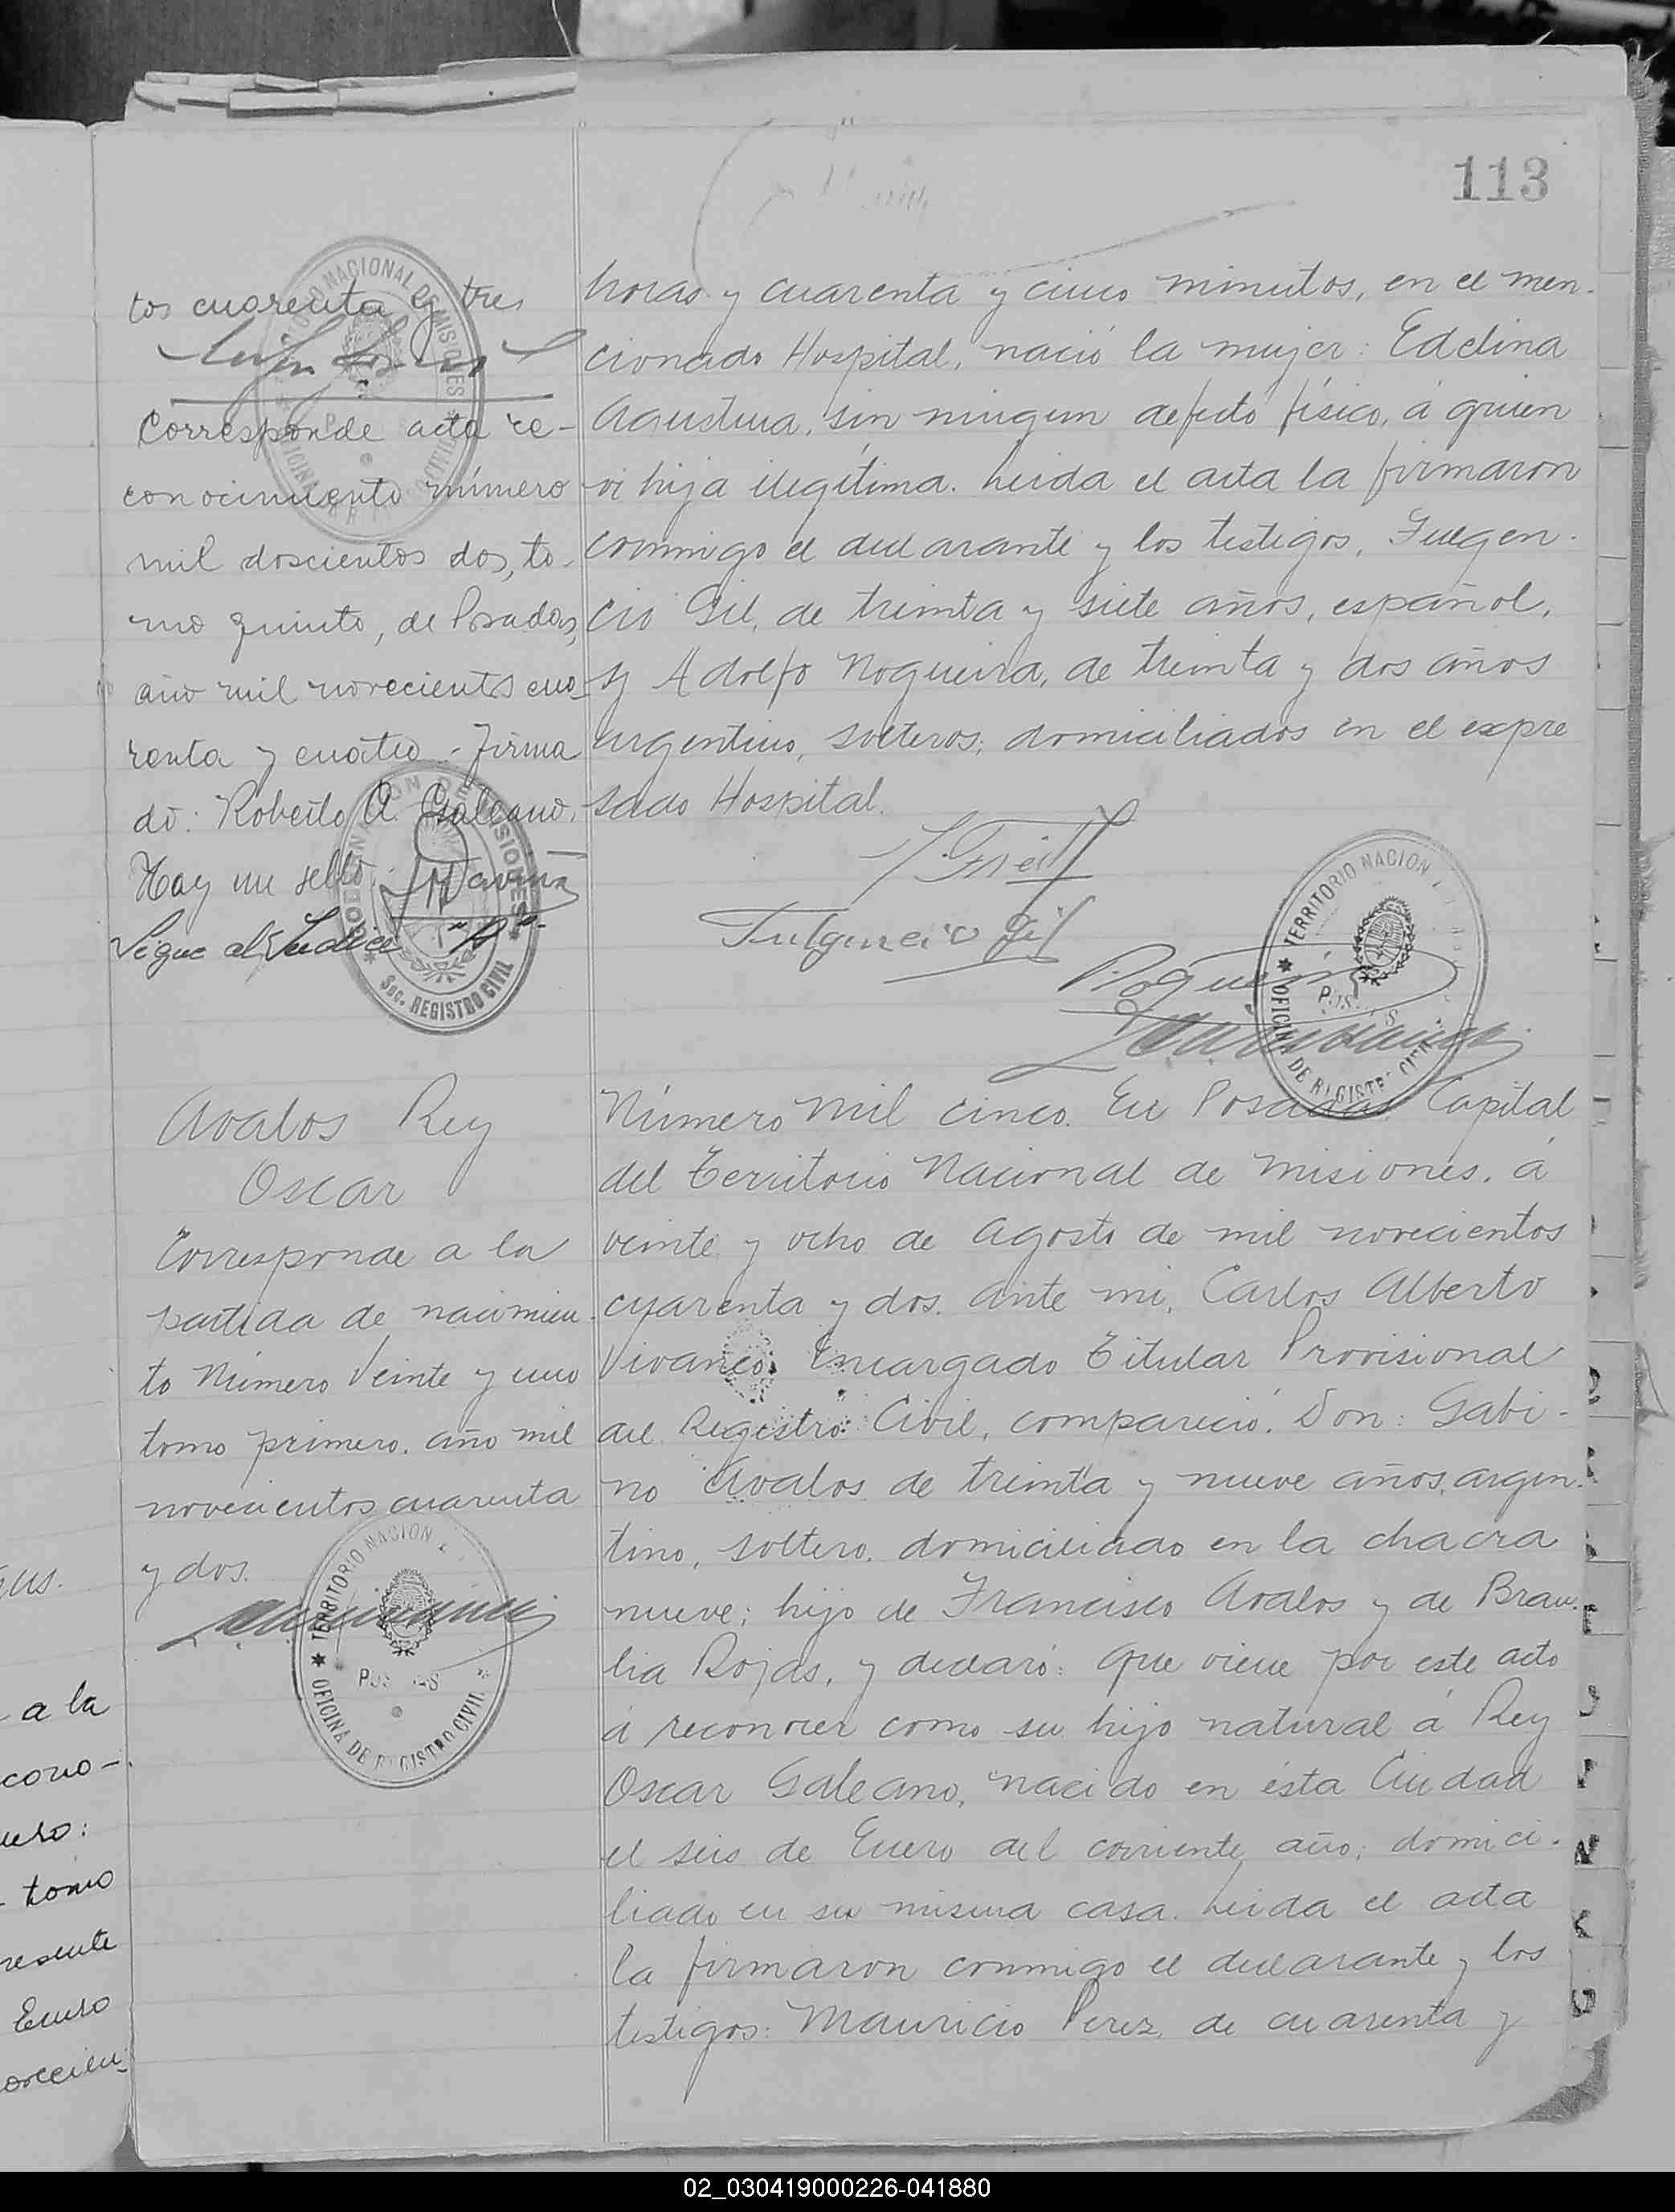 113
tos cuarenta y tres
Corresponde acta re-
conocimiento número
mil doscientos dos, to-
mo quinto, de Posadas,
año mil novecientos cua-
renta y cuatro. - Firma
do: Roberto A. Galeano.
Hay un sello.
Sigue al Indice "A"
horas y cuarenta y cinco minutos, en el men-
cionado Hospital, nació la mujer: Edelina
Agustina, sin ningun defecto físico, á quien
vi hija ilegítima. Leida el acta la firmaron
conmigo el declarante y los testigos, Fulgen-
cio Gil, de treinta y siete años, español,
y Adolfo Nogueira, de treinta y dos años
argentino, solteros; domiciliados en el expre
sado Hospital.
Fulgencio Gil
Nogueira
TERRITORIO NACIONAL DE MISIONES
OFICINA DE REGISTRO CIVIL
GOBERNACION DE MISIONES
Sec. REGISTRO CIVIL
TERRITORIO NACION
POSADAS
OFICINA DE REGISTRO CIVIL
Avalos Rey
Oscar
Corresponde a la
partida de nacimien-
to Número Veinte y uno
tomo primero. año mil
novecientos cuarenta
y dos.
TERRITORIO NACION
POSADAS
OFICINA DE REGISTRO CIVIL
Número mil cinco. En Posadas Capital
del Territorio Nacional de Misiones, á
veinte y ocho de Agosto de mil novecientos
cuarenta y dos. ante mi, Carlos Alberto
Vivanco. Encargado Titular Provisional
del Registro Civil, compareció. Don: Gabi-
no Avalos de treinta y nueve años, argen-
tino, soltero. domiciliado en la chacra
nueve; hijo de Francisco Avalos y de Brau-
lia Rojas, y declaró: que viene por este acto
á reconocer como su hijo natural á Rey
Oscar Galeano, nacido en ésta Ciudad
el seis de Enero del corriente año; domici-
liado en su misma casa. Leida el acta
la firmaron conmigo el declarante y los
testigos: Mauricio Perez, de cuarenta y
a la
cono-
tomo
Enero
02_030419000226-041880